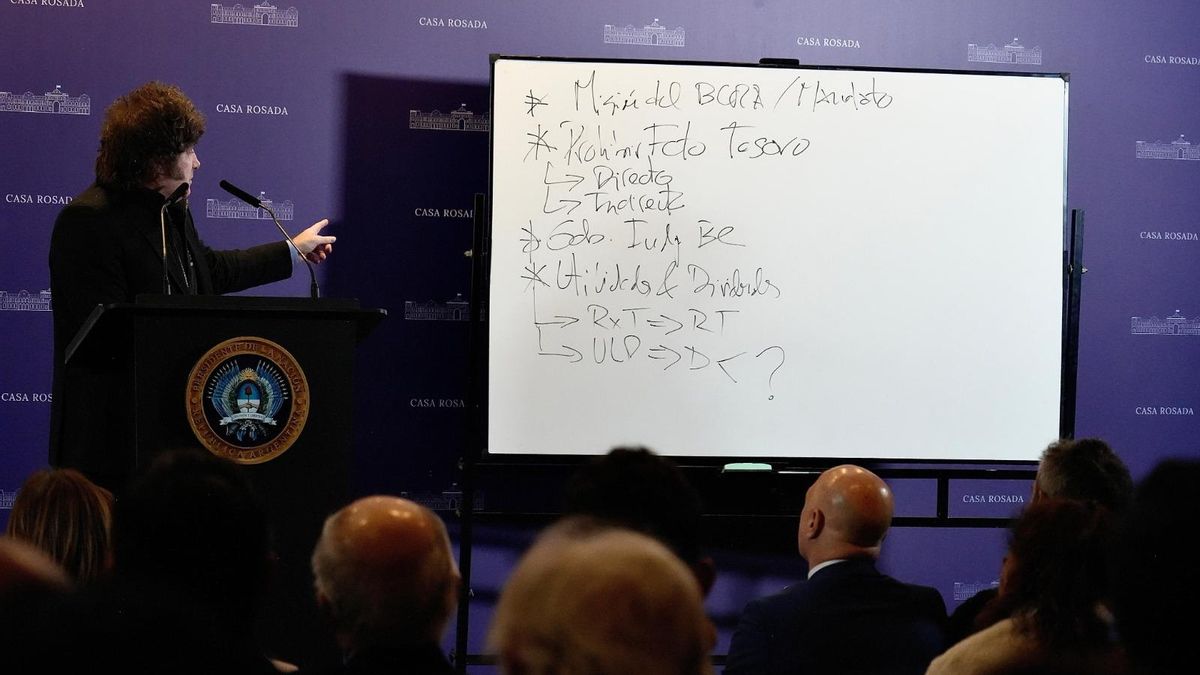 CASA ROSADA
CASA ROSADA
CASA ROSADA
CASA ROSADA
CASA ROSADA
CASA ROSADA
CASA ROSADA
CASA ROSADA
CASA ROSADA
CASA ROSADA
CASA ROSADA
CASA ROSADA
CASA ROSADA
* Misión del BCRA / Mandato
* Prohibir Fcto Tesoro
↳ Directo
↳ Indirect
* Gob. BC
* Utilidades & Dividendos
→ RxT ⇒ RT
→ ULD ⇒ D < ?
PRESIDENTE DE LA NACIÓN
REPÚBLICA ARGENTINA